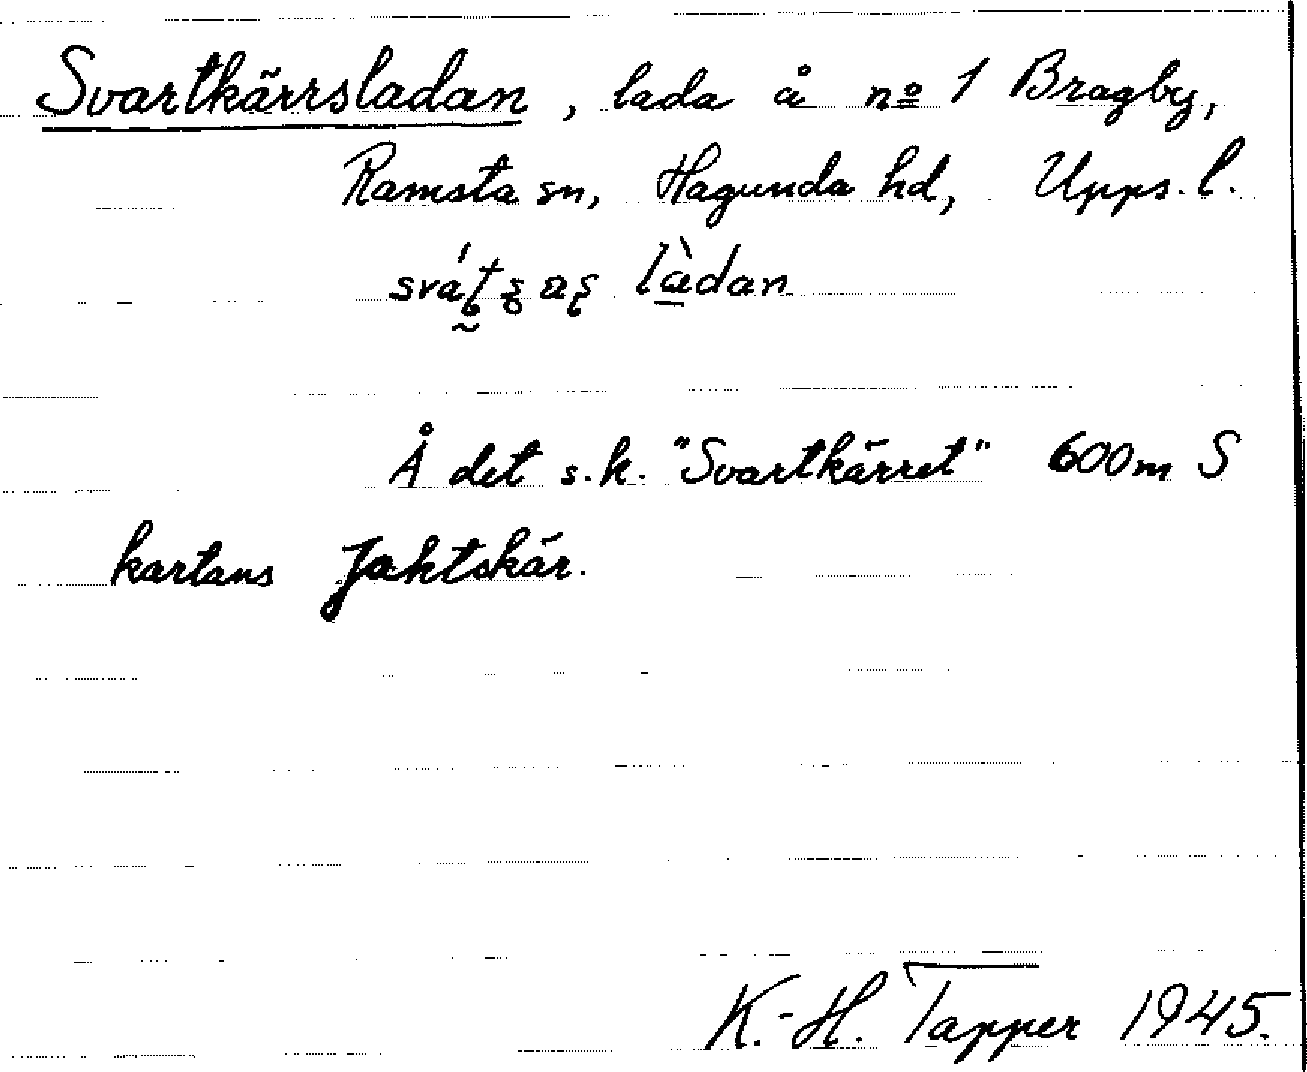 Svartkärrsladan, lada å nº 1 Bragby,
Ramsta sn, Hagunda hd, Upps. l.
làdan
Å det s.k. "Svartkärret" 600m S
kartans Jaktskär.
K.-H. Tapper 1945.